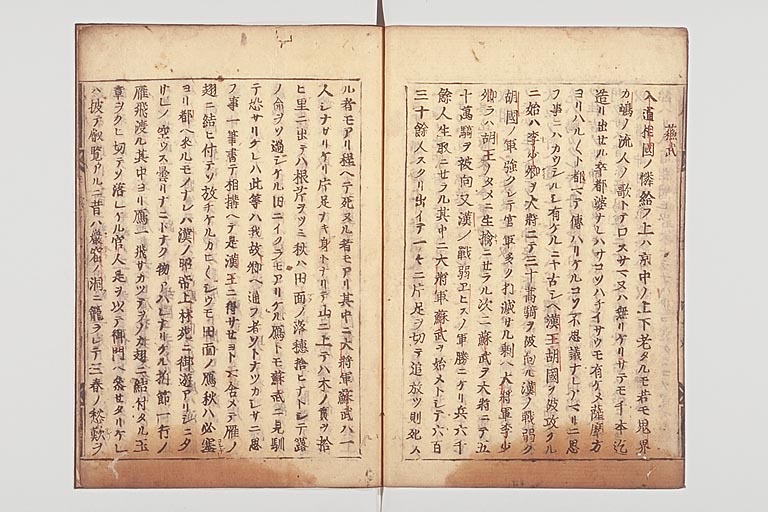 蘇武
入道相國ノ憐給フ上ハ京中ノ上下老タルモ若モ鬼界
カ嶋ノ流人ノ歌トテ口スサマヌハ無リケリサテモ千本迄
造リ出セル卒都婆ナレハサコソハチイサウモ有ケメ薩摩方
ヨリハル〱ト都マテ傳ハリケルコソ不思議ナレアマリニ思
フ事ニハカウシルシ有ケルニヤ古シヘ漢王胡國ヲ被攻ケル
ニ始ハ李少卿ヲ大將ニテ三十萬騎ヲ被向ル漢ノ戰弱ク
胡國ノ軍強クシテ官軍多ク打滅サル剰ヘ大將軍李少
卿ヲハ胡王ノタメニ生捨ニセラル次ニ蘇武ヲ大將ニテ五
十萬騎ヲ被向又漢ノ戰弱ヱヒスノ軍勝ニケリ兵六千
餘人生取ニセラル其中ニ大將軍蘇武ヲ始トシテ六百
三十餘人スクリ出イテ一々ニ片足ヲ切テ追放ツ則死ス
ル者モアリ程ヘテ死ヌル者モアリ其中ニ大將軍蘇武ハ一
人シナサリケリ片足ナキ身トナリテ山ニ上テハ木ノ實ヲ拾
ヒ里ニ出テハ根芹ヲツミ秋ハ田面ノ落穂捨ヒナトシテ露
ノ命ヲソ過シケル田ニイクラモアリケル鴈トモ蘇武ニ見馴
テ恐サリケレハ此等ハ我故郷ヘ通フ者ソトナツカシサニ思
フ事一筆書テ相搆ヘテ是漢王ニ得サセヨト云含メテ鴈ノ
翅ニ結ヒ付テソ放チケルカヒ〱シウモ田面ノ鴈秋ハ必塞
ヨリ都ヘ來ルモノナレハ漢ノ昭帝上林苑ニ御遊アリシニタ
サレノ空ウス曇リナニトナク物アハレナリケル折節一行ノ
鴈飛渡ル其中ヨリ鴈一飛サカツテヲノカ翅ニ結付タル玉
章ヲクヒ切テソ落シケル官人是ヲ取テ御門ヘ參セタリケレ
ハ披テ叡覧アルニ昔ハ巖窟ノ洞ニ籠ラレテ三春ノ愁歎ヲ